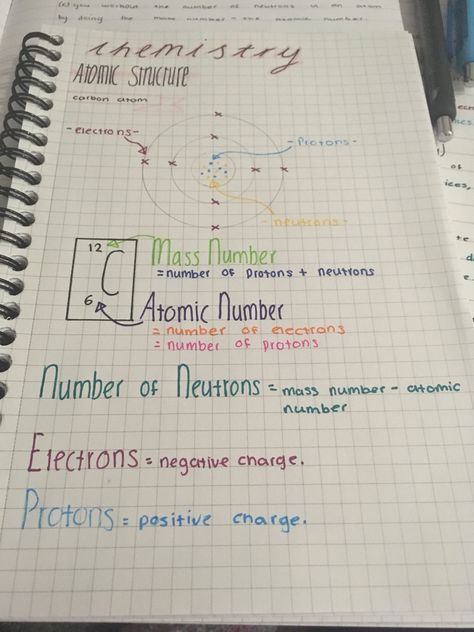 (c) you workout the number of neutrons in an atom
by doing the mass number - the atomic number.
chemistry
ATOMIC STRUCTURE
carbon atom
- electrons -
- Protons -
- neutrons -
12
C
6
Mass Number
= number of protons + neutrons
Atomic Number
= number of electrons
= number of protons
Number of Neutrons = mass number - atomic
number
Electrons = negative charge.
Protons = positive charge.
of